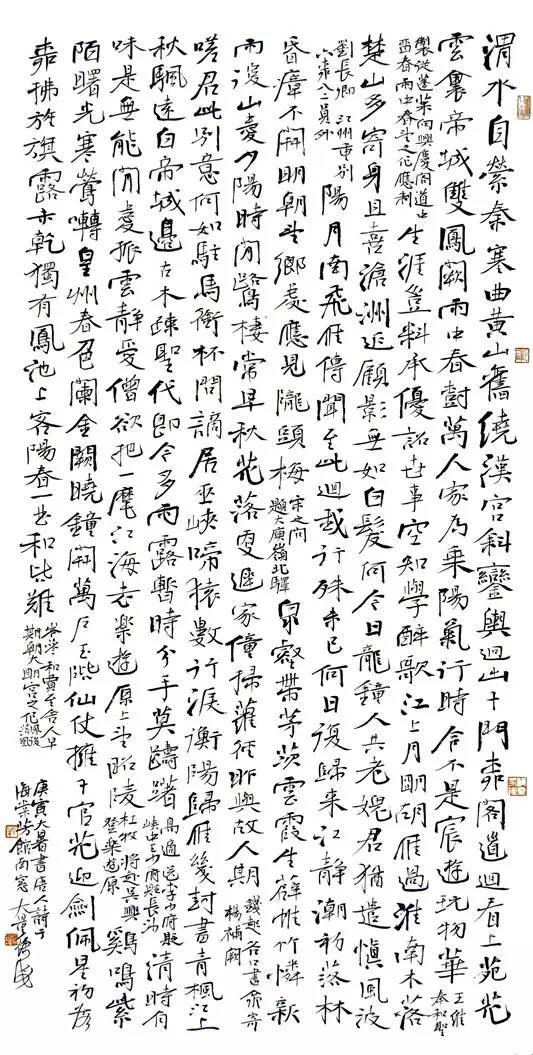 渭水自縈秦塞曲黃山舊繞漢宮斜鑾輿迥出千門柳閣道迴看上苑花
雲裏帝城雙鳳闕雨中春樹萬人家為乘陽氣行時令不是宸遊玩物華王維奉和聖
製從蓬萊向興慶閣道中留春雨中春望之作應制生涯豈料承優詔世事空知學醉歌江上月明胡雁過淮南木落
楚山多寄身且喜滄洲近顧影無如白髮何今日龍鐘人共老媿君猶遣慎風波
劉長卿江州重別薛六柳八二員外陽月南飛雁傳聞至此迴我行殊未已何日復歸來江靜潮初落林
昏瘴不開明朝望鄉處應見隴頭梅宋之問題大庾嶺北驛泉壑帶茅茨雲霞生薜帷竹憐新
雨後山愛夕陽時閒鷺棲常早秋花落更遲家僮掃蘿徑昨與故人期錢起谷口書齋寄楊補闕
嗟君此別意何如駐馬銜杯問謫居巫峽啼猿數行淚衡陽歸雁幾封書青楓江上
秋颿遠白帝城邊古木疎聖代即今多雨露暫時分手莫躊躇高適送李少府貶峽中王少府貶長沙清時有
味是無能閒愛孤雲靜愛僧欲把一麾江海去樂遊原上望昭陵杜牧將赴吳興登樂遊原雞鳴紫
陌曙光寒鶯囀皇州春色闌金闕曉鐘開萬戶玉階仙仗擁千官花迎劍佩星初落
柳拂旌旗露未乾獨有鳳池上客陽春一曲和皆難岑參和賈至舍人早朝大明宮之作
庚寅大暑書唐人詩于
海棠芳館南窗